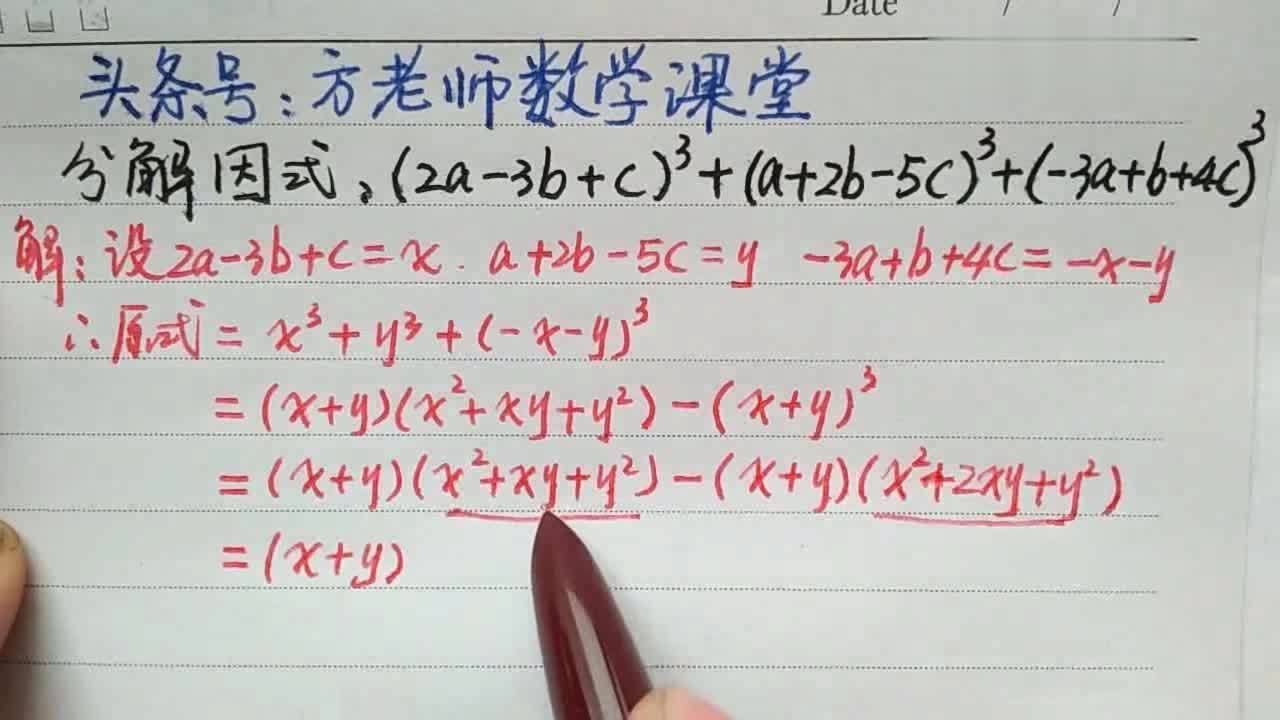 Date / /
头条号:方老师数学课堂
分解因式:(2a-3b+c)³+(a+2b-5c)³+(-3a+b+4c)³
解:设2a-3b+c=x. a+2b-5c=y -3a+b+4c=-x-y
∴原式= x³+y³+(-x-y)³
=(x+y)(x²+xy+y²)-(x+y)³
=(x+y)(x²+xy+y²)-(x+y)(x²+2xy+y²)
=(x+y)